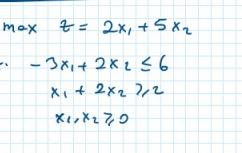 max z = 2x₁ + 5x₂
-3x₁ + 2x₂ ≤ 6
x₁ + 2x₂ ≥ 2
x₁, x₂ ≥ 0